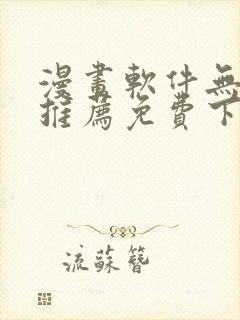 漫畫軟件無
推薦免費下
流蘇簪